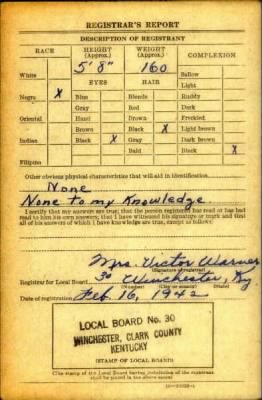 REGISTRAR'S REPORT
DESCRIPTION OF REGISTRANT
RACE HEIGHT (Approx.) WEIGHT (Approx.) COMPLEXION
5' 8" 160
White Sallow
EYES HAIR Light
Negro X Blue Blonde Ruddy
Gray Red Dark
Oriental Hazel Brown Freckled
Brown Black X Light brown
Indian Black X Gray Dark brown
Bald Black X
Filipino
Other obvious physical characteristics that will aid in identification
None
None to my Knowledge.
I certify that my answers are true; that the person registered has read or has had read to him his own answers; that I have witnessed his signature or mark and that all of his answers of which I have knowledge are true, except as follows:
Mrs. Victor Warner
(Signature of registrar)
Registrar for Local Board 30 Winchester, Ky
(Number) (City or county) (State)
Date of registration Feb. 16, 1942
LOCAL BOARD No. 30
WINCHESTER, CLARK COUNTY
KENTUCKY
(STAMP OF LOCAL BOARD)
(The stamp of the Local Board having jurisdiction of the registrant shall be placed in the above space.)